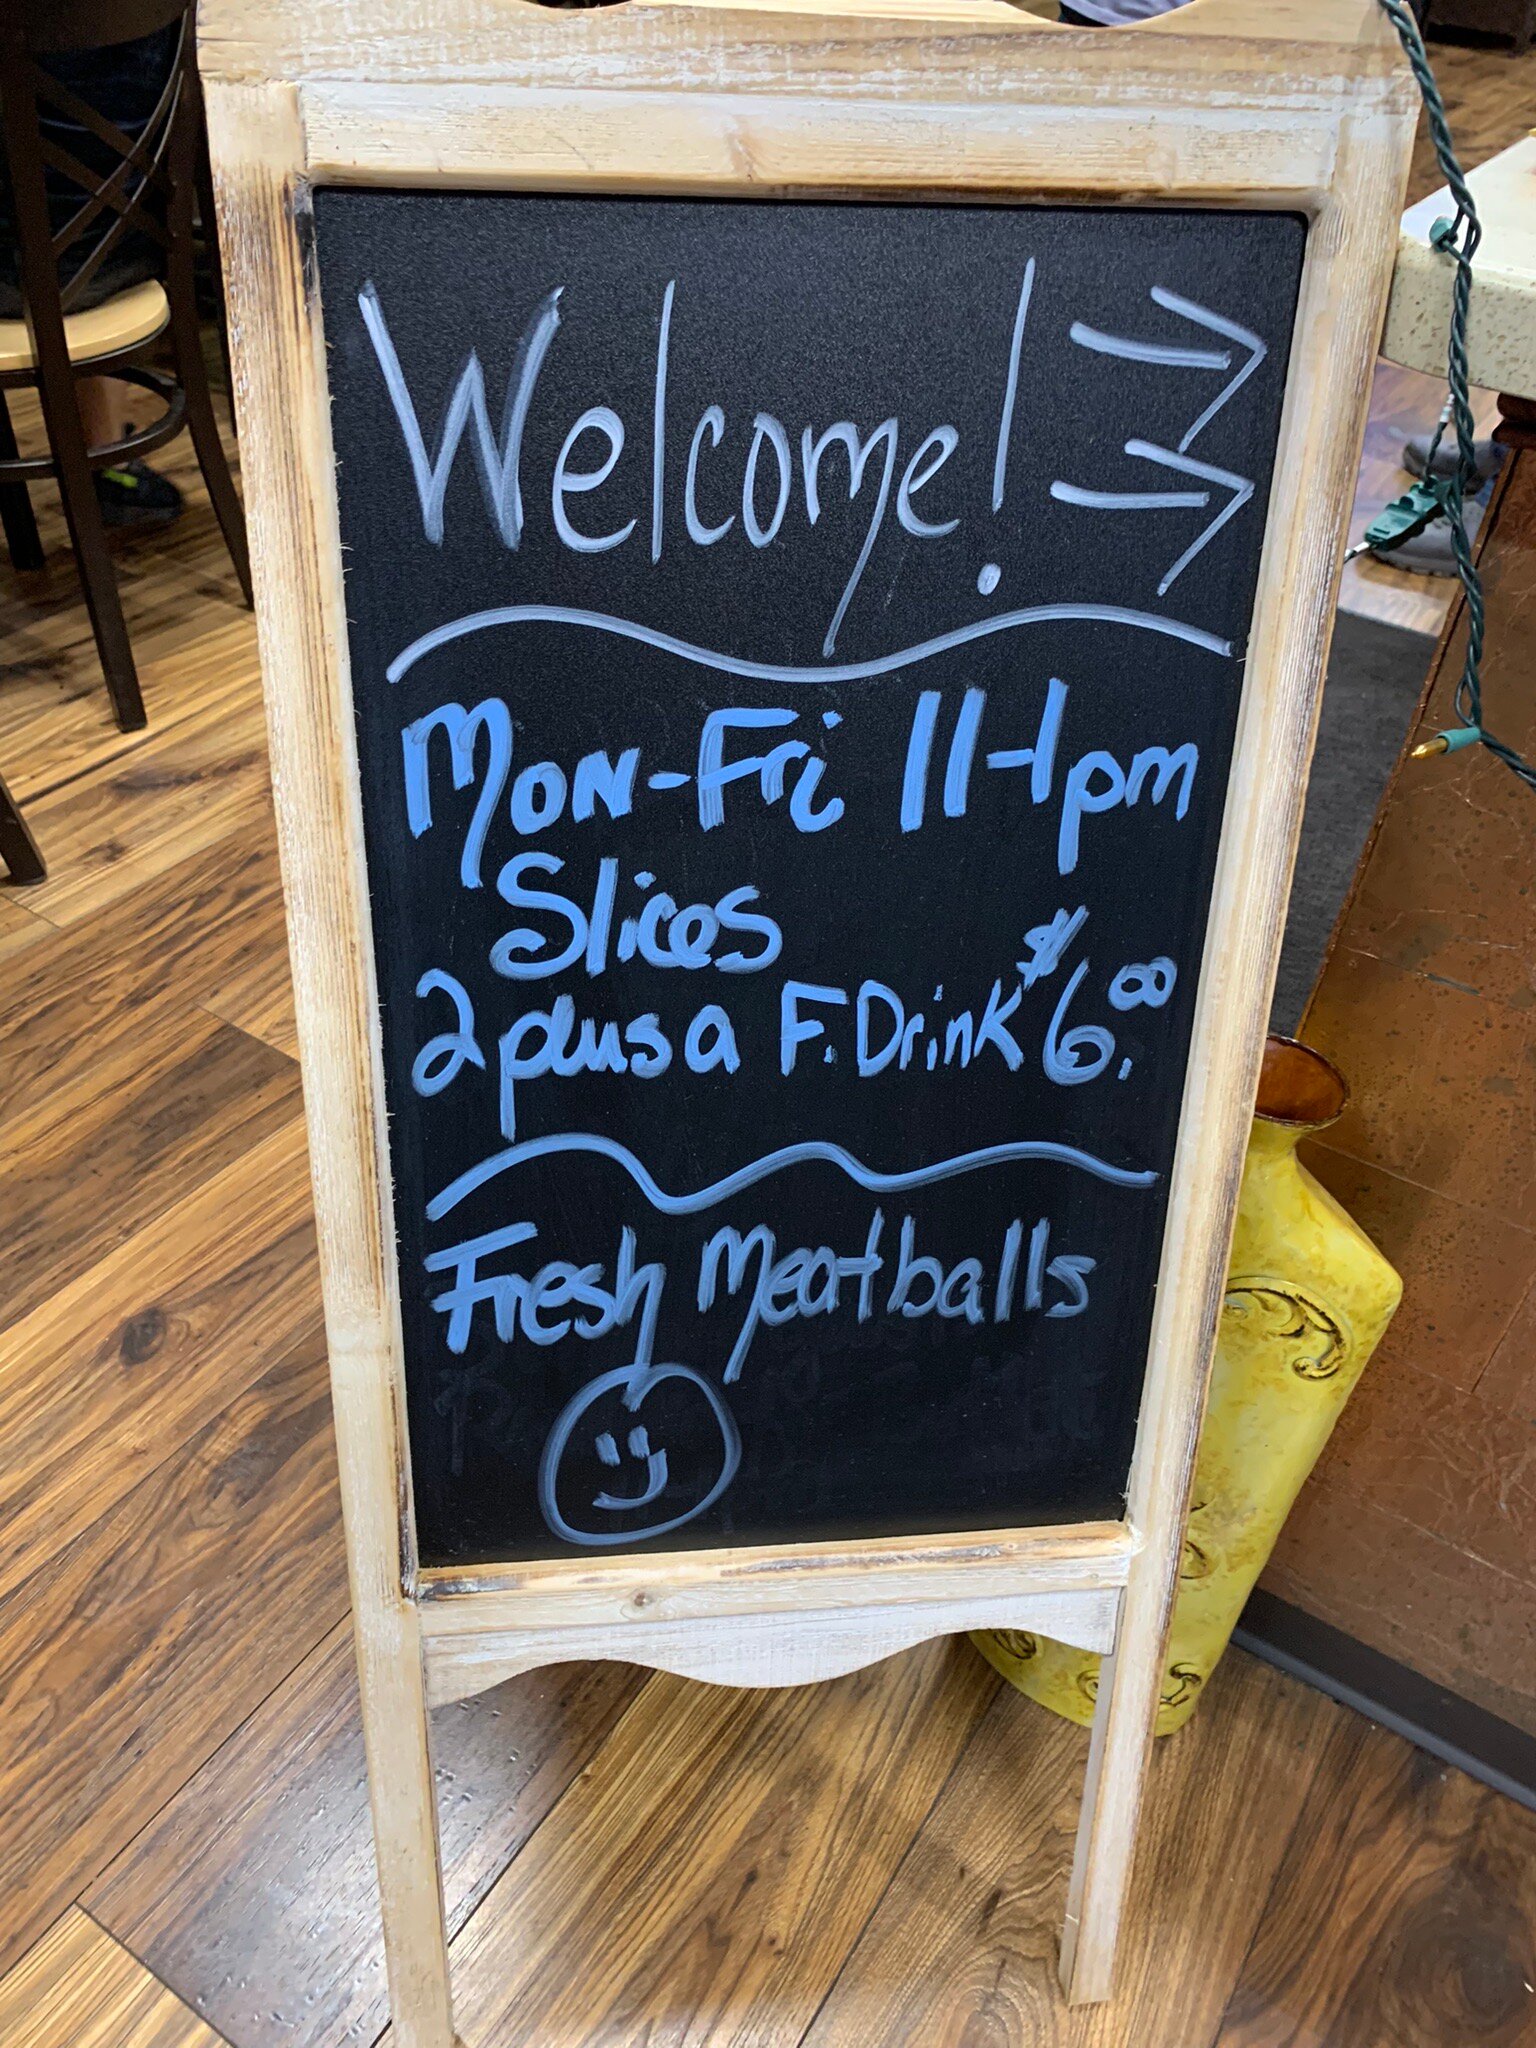 Welcome!
Mon-Fri 11-1pm
Slices
2 plus a F. Drink $6.00
Fresh Meatballs